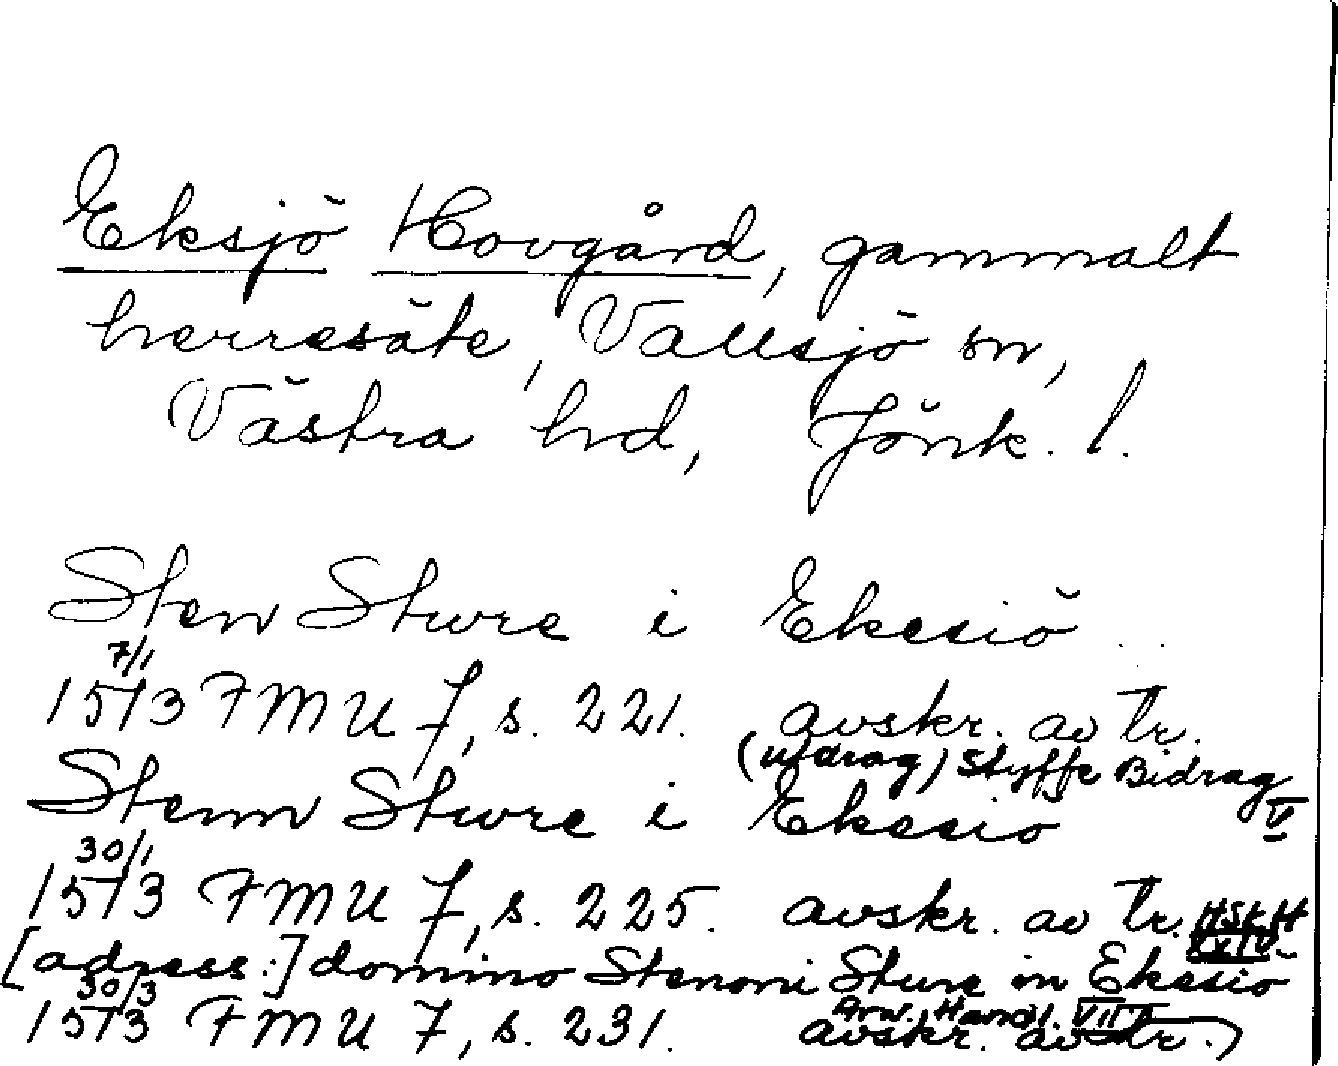 Eksjö Hovgård, gammalt
herresäte, Vallsjö sn,
Västra hd, Jönk. l.
Sten Sture i Ekesiö
7/1
1513 FMU 7, s. 221. avskr. av tr.
(utdrag) Styffe Bidrag V
Stenn Sture i Ekesiö
30/1
1513 FMU 7, s. 225. avskr. av tr. HSkH XXIV
[adress:] domino Stenoni Sture in Ekesiö
30/3
1513 FMU 7, s. 231. avskr. av tr.
Arw. Handl. VIII